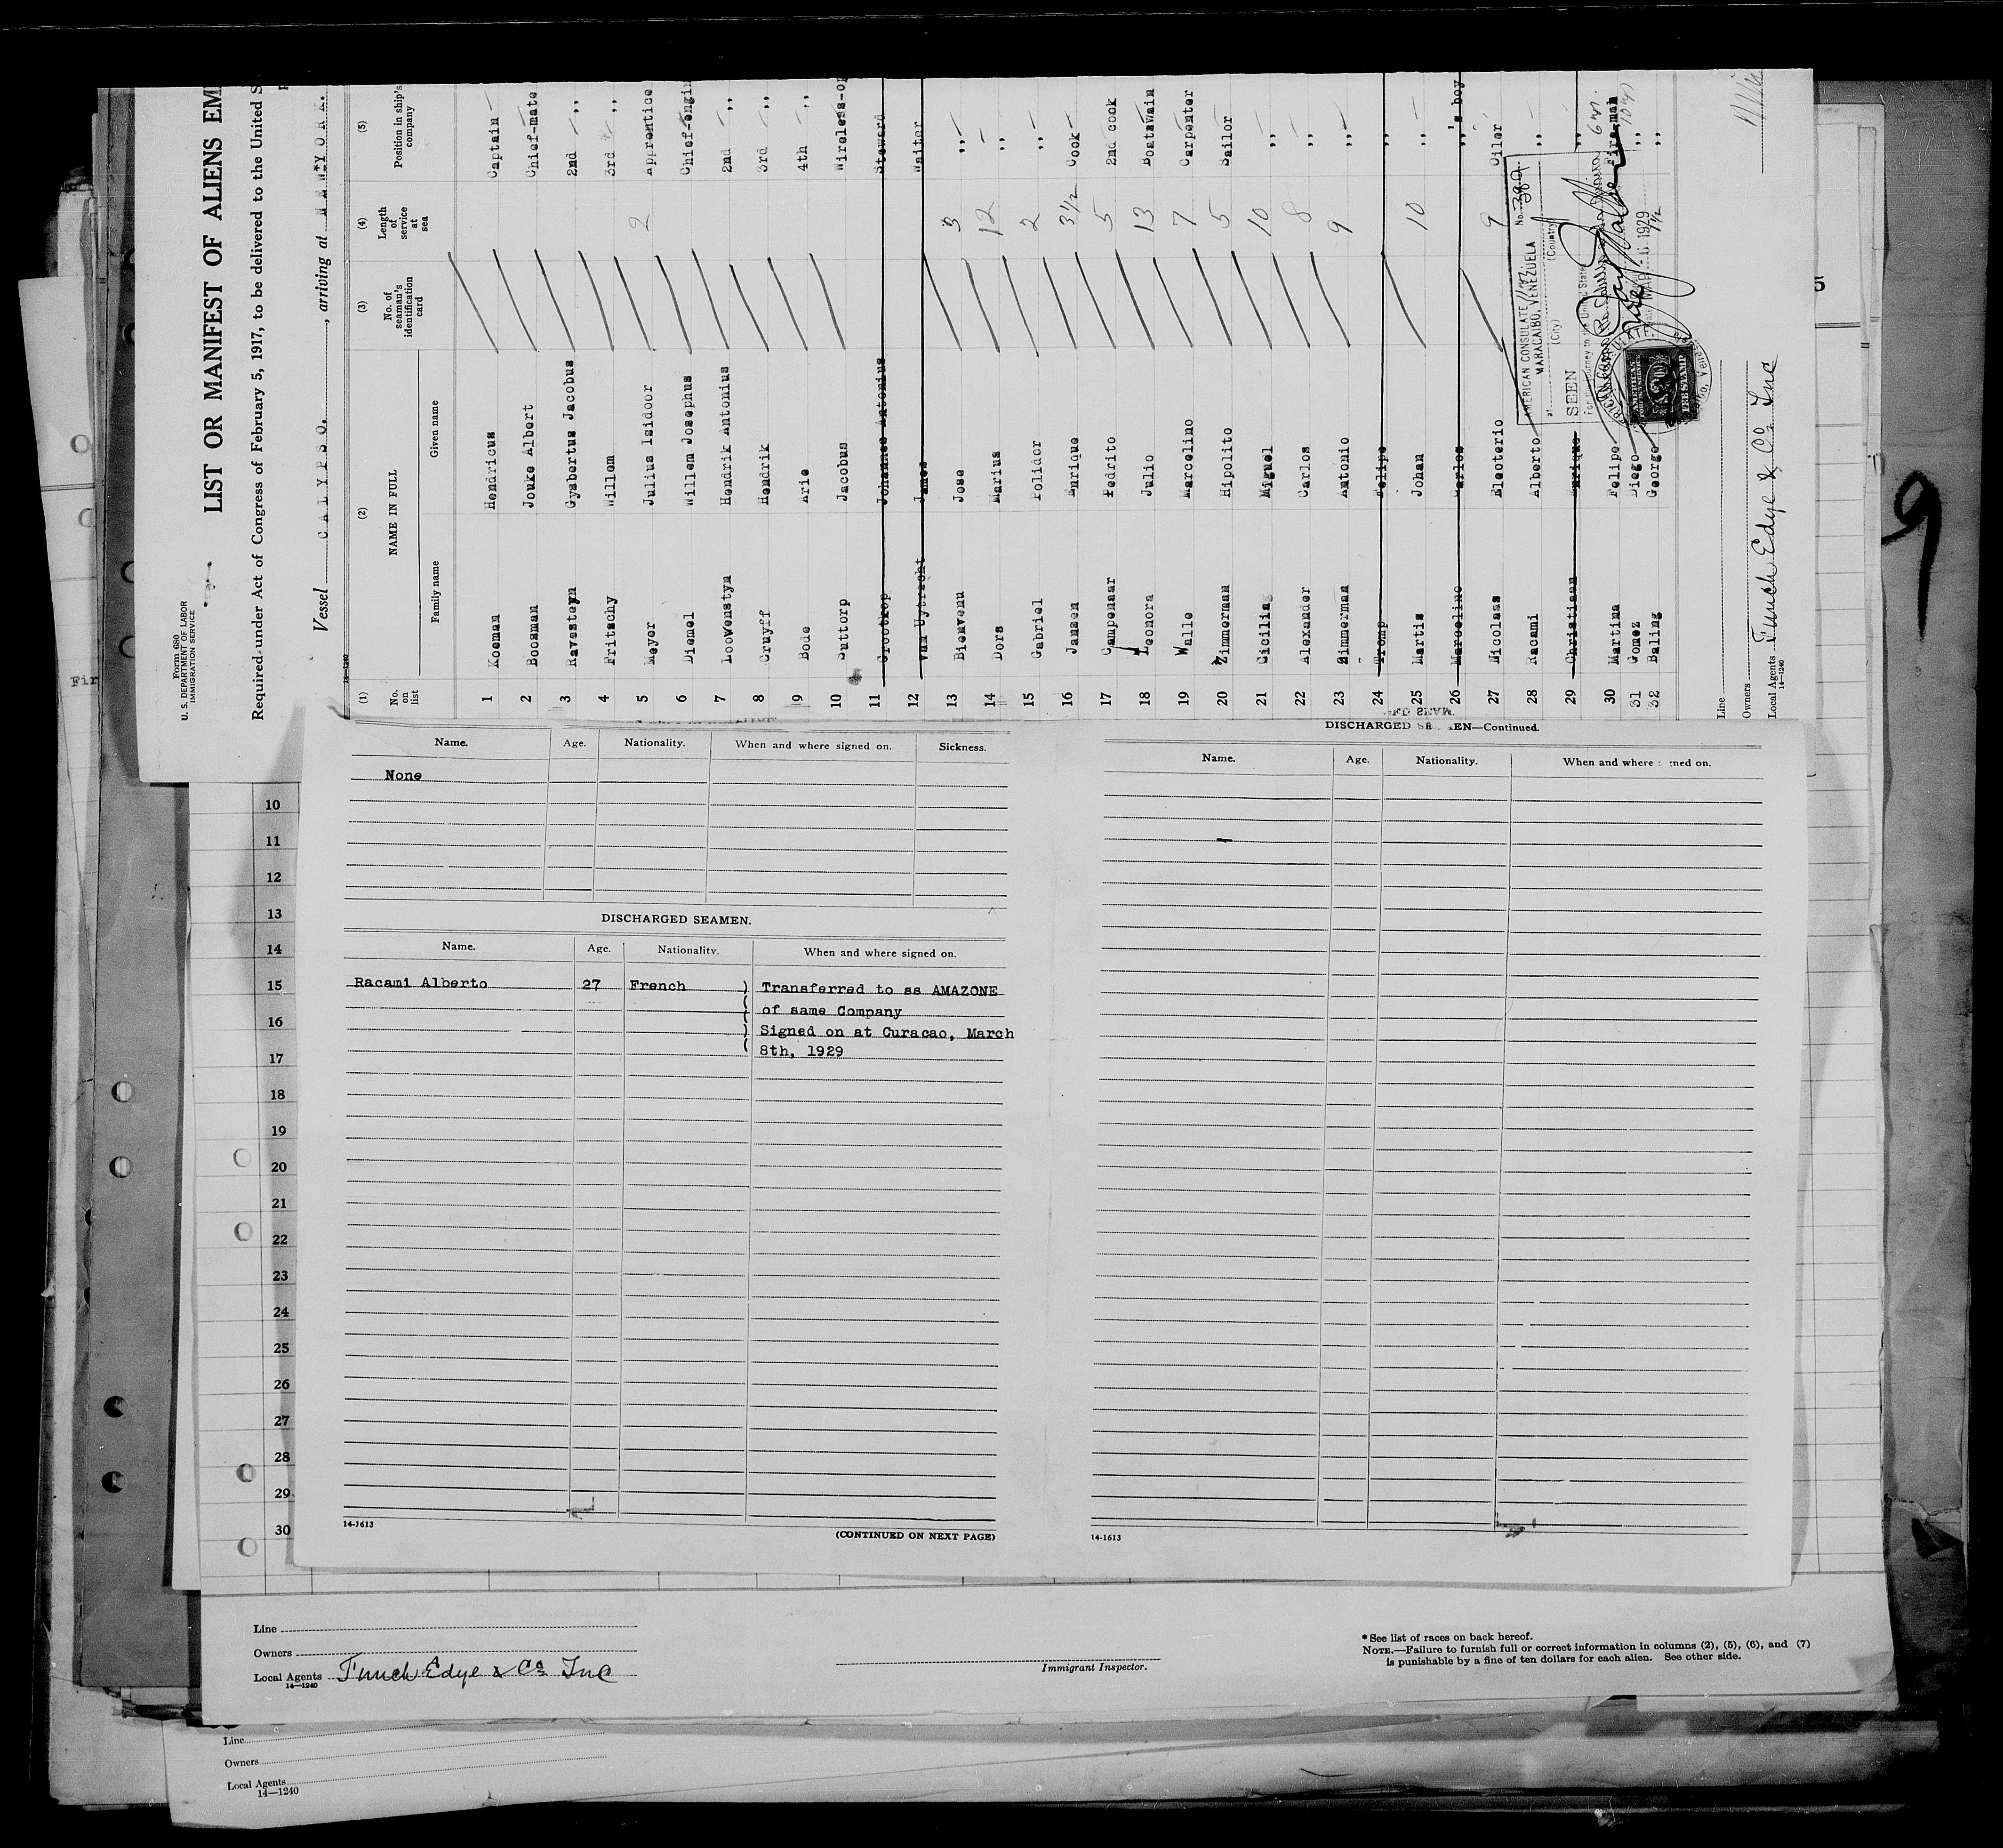 Form 680
U. S. DEPARTMENT OF LABOR
IMMIGRATION SERVICE
LIST OR MANIFEST OF ALIENS EM
Required under Act of Congress of February 5, 1917, to be delivered to the United S
Vessel CALYPSO. , arriving at NEW YORK.
14-1240
(1) (2) (3) (4) (5)
No. on list NAME IN FULL No. of seaman's identification card Length of service at sea Position in ship's company
Family name Given name
1 Koeman Hendricus Captain
2 Boosman Jouke Albert Chief-mate
3 Ravesteyn Gysbertus Jacobus 2nd ,,
4 Fritschy Willem 3rd ,,
5 Meyer Julius Isidoor 2 Apprentice
6 Diemel Willem Josephus Chief-engi
7 Loowenstyn Hendrik Antonius 2nd ,,
8 Cruyff Hendrik 3rd ,,
9 Bode Arie 4th ,,
10 Buttorp Jacobus Wireless-o
11 Grootkop Johannes Antonius Steward
12 van Uytracht James Waiter
13 Bienvenu Jose 3 ,,
14 Dors Marius 12 ,,
15 Gabriel Polidor 2 ,,
16 Janzen Enrique 3½ Cook
17 Campenaar Pedrito 5 2nd cook
18 Leonora Julio 13 Boatswain
19 Walle Marcelino 7 Carpenter
20 Zimmerman Hipolito 5 Sailor
21 Cicilia Miguel 10 ,,
22 Alexander Carlos 8 ,,
23 Zimmerman Antonio 9 ,,
24 Tromp Felipe ,,
25 Martis Johan 10 ,,
26 Marcelino Carlos ,,'s boy
27 Nicolaas Eleoterio 9 Oiler
28 Racami Alberto ,,
29 Christiaan Enrique ,,
30 Martina Felipe Fire-man
31 Gomez Diego ,,
32 Baling George 1½ ,,
AMERICAN CONSULATE
No. 380
at MARACAIBO, VENEZUELA
(City) (Country)
SEEN
For the journey to the United States
MAR - 6 1929
AMERICAN
FEE STAMP
Line
Owners
Local Agents Funch Edye & Co Inc
14-1240
9
5
Fir
Name. Age. Nationality. When and where signed on. Sickness.
None
DISCHARGED SEAMEN.
Name. Age. Nationality. When and where signed on.
Racami Alberto 27 French Transferred to ss AMAZONE
of same Company
Signed on at Curacao, March
8th, 1929
14-1613 (CONTINUED ON NEXT PAGE)
DISCHARGED EN—Continued.
Name. Age. Nationality. When and where ned on.
14-1613
10
11
12
13
14
15
16
17
18
19
20
21
22
23
24
25
26
27
28
29
30
Line
Owners
Local Agents Funch Edye & Co Inc
14—1240
Immigrant Inspector.
* See list of races on back hereof.
NOTE.—Failure to furnish full or correct information in columns (2), (5), (6), and (7)
is punishable by a fine of ten dollars for each alien. See other side.
Line
Owners
Local Agents
14—1240